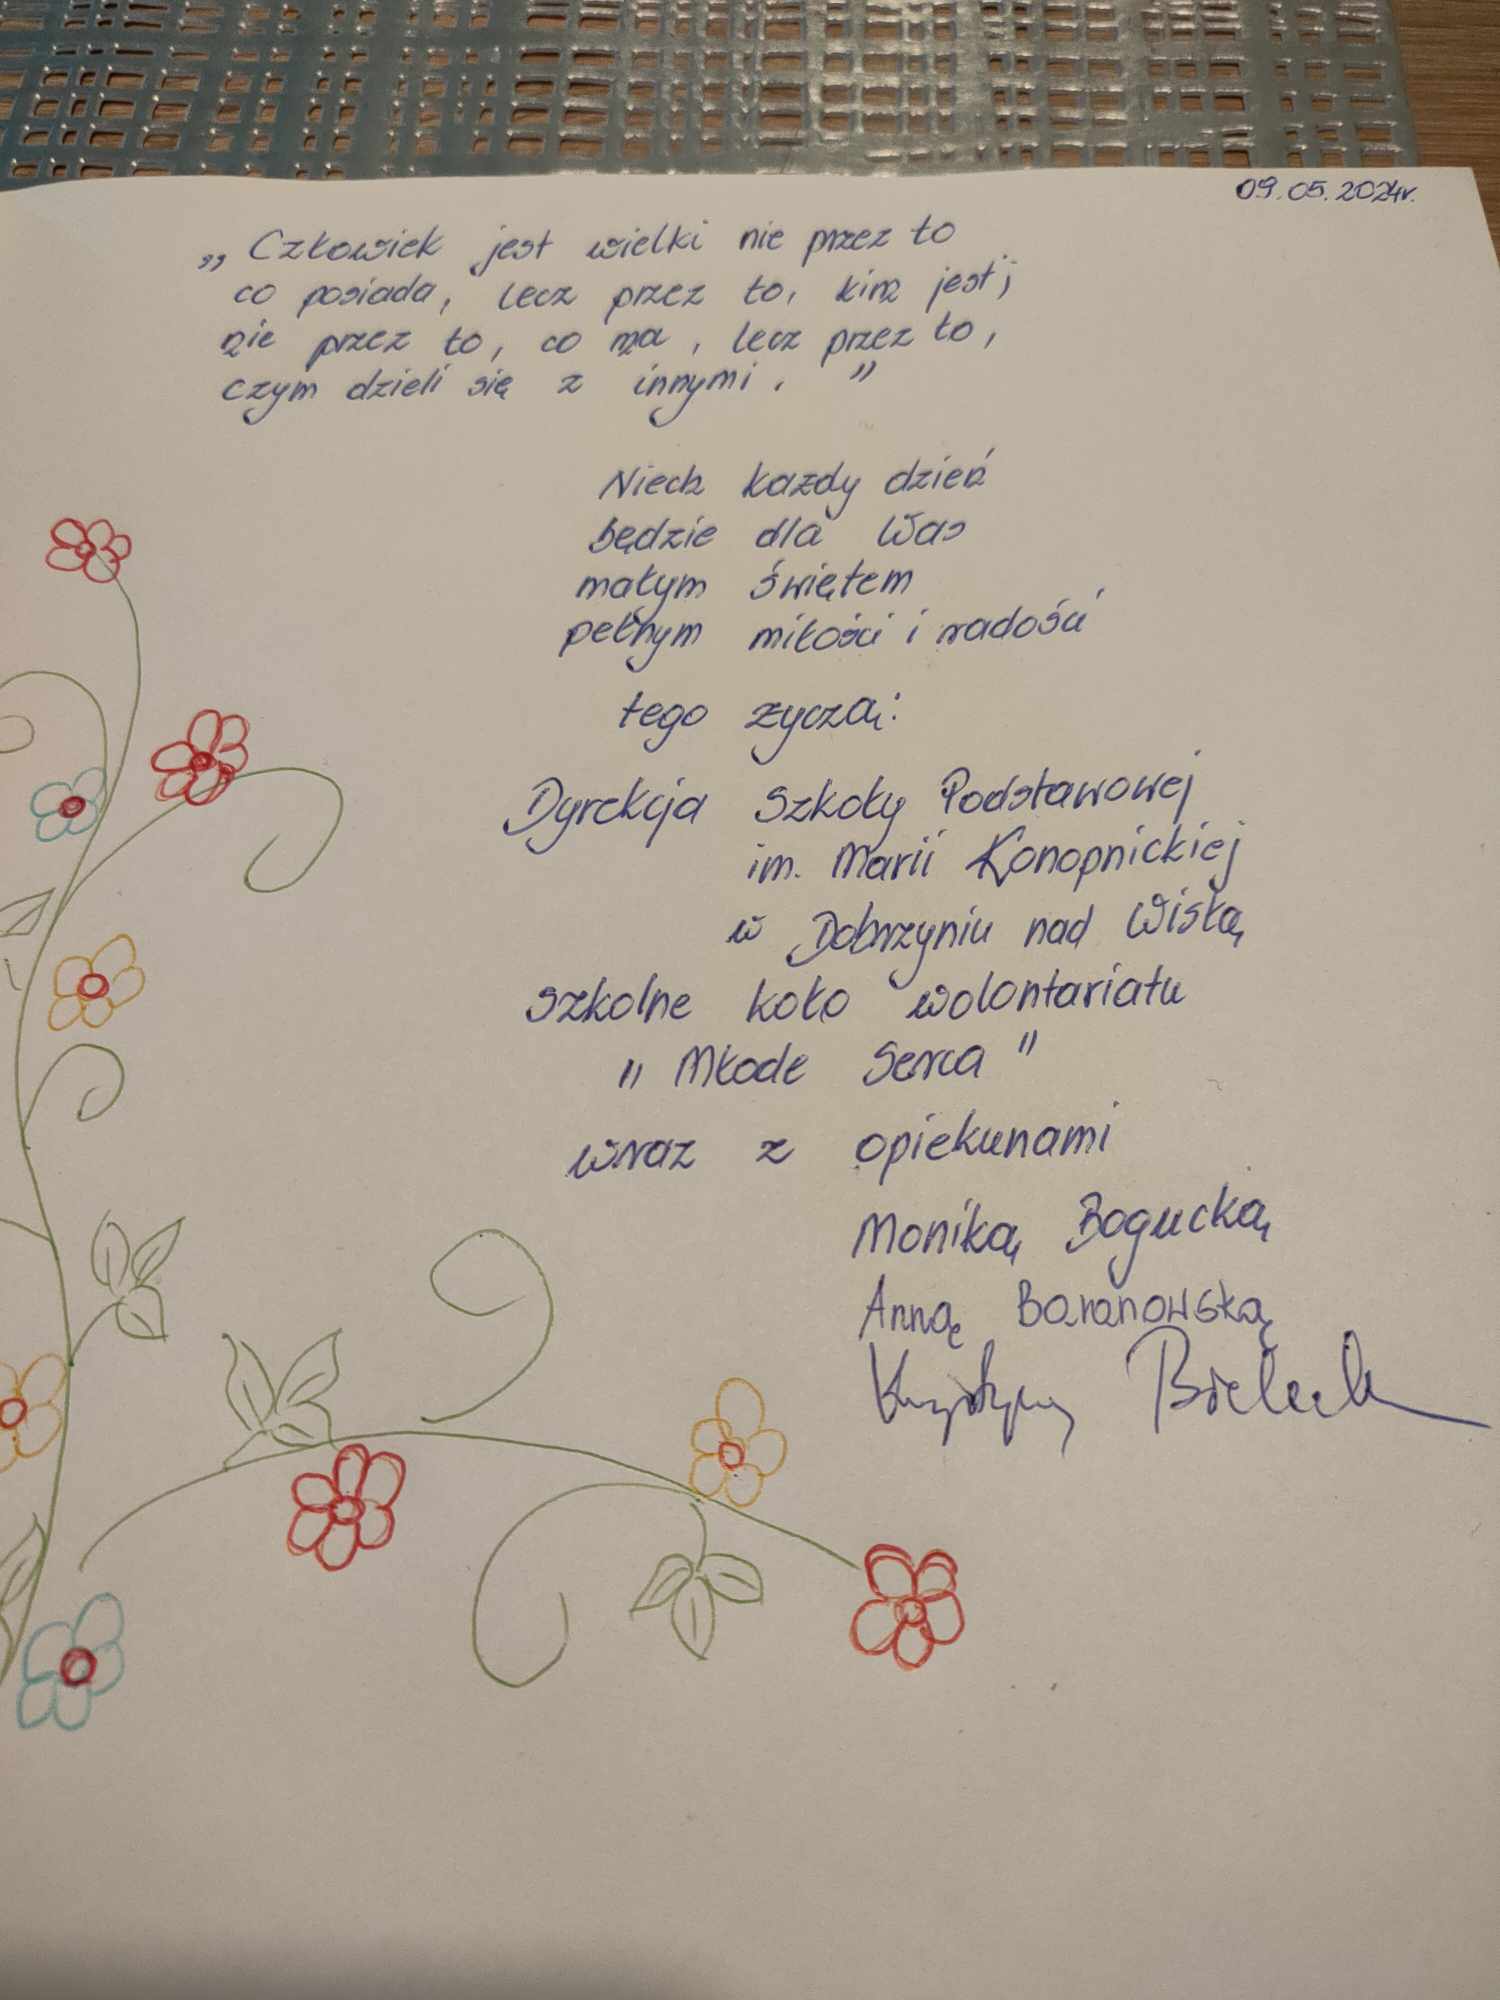 09.05.2024r.
„Człowiek jest wielki nie przez to
co posiada, lecz przez to, kim jest;
nie przez to, co ma, lecz przez to,
czym dzieli się z innymi."
Niech każdy dzień
będzie dla Was
małym świętem
pełnym miłości i radości
tego życzą:
Dyrekcja Szkoły Podstawowej
im. Marii Konopnickiej
w Dobrzyniu nad Wisłą
Szkolne koło wolontariatu
"Młode Serca"
wraz z opiekunami
Moniką Bogucką
Anną Baranowską